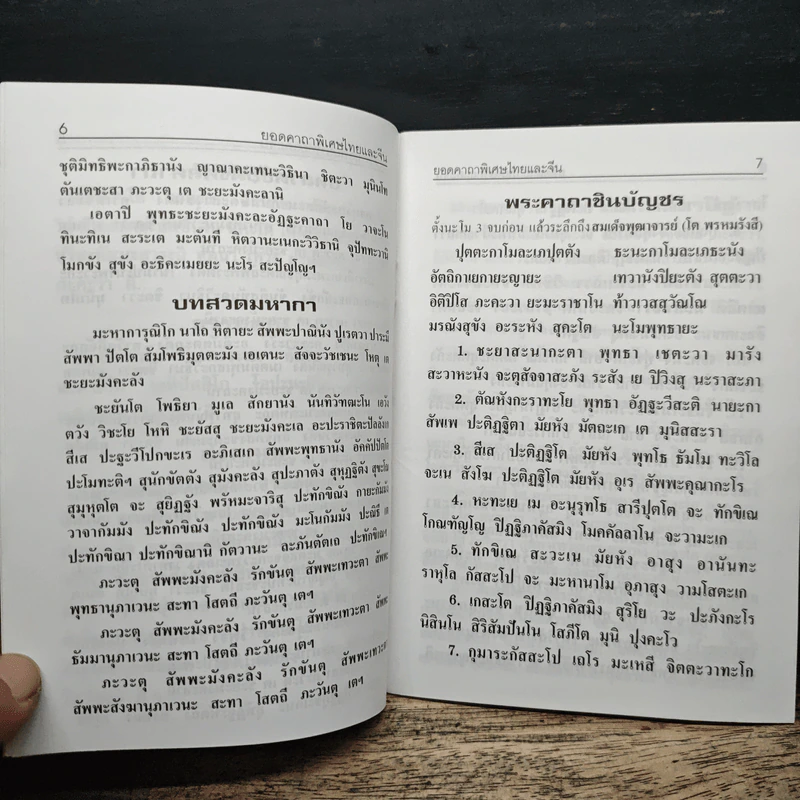 6
ยอดคาถาพิเศษไทยและจีน
ชุติมิทธิพะกาภิธานัง ญาณาคะเทนะวิธินา ชิตะวา มุนินโท
ตันเตชะสา ภะวะตุ เต ชะยะมังคะลานิ
เอตาปิ พุทธะชะยะมังคะละอัฏฐะคาถา โย วาจะโน
ทินะทิเน สะระเต มะตันที หิตวานะเนกะวิวิธานิ จุปัททะวานิ
โมกขัง สุขัง อะธิคะเมยยะ นะโร สะปัญโญฯ
บทสวดมหากา
มะหาการุณิโก นาโถ หิตายะ สัพพะปาณินัง ปูเรตวา ปาระมี
สัพพา ปัตโต สัมโพธิมุตตะมัง เอเตนะ สัจจะวัชเชนะ โหตุ เต
ชะยะมังคะลัง
ชะยันโต โพธิยา มูเล สักยานัง นันทิวัฑฒะโน เอวัง
ตวัง วิชะโย โหหิ ชะยัสสุ ชะยะมังคะเล อะปะราชิตะปัลลังเก
สีเส ปะฐะวีโปกขะเร อะภิเสเก สัพพะพุทธานัง อัคคัปปัตโต
ปะโมทะติฯ สุนักขัตตัง สุมังคะลัง สุปะภาตัง สุหุฏฐิตัง สุขะโณ
สุมุหุตโต จะ สุยิฏฐัง พรัหมะจาริสุ ปะทักขิณัง กายะกัมมัง
วาจากัมมัง ปะทักขิณัง ปะทักขิณัง มะโนกัมมัง ปะณิธี เต
ปะทักขิณา ปะทักขิณานิ กัตวานะ ละภันตัตเถ ปะทักขิเณฯ
ภะวะตุ สัพพะมังคะลัง รักขันตุ สัพพะเทวะตา สัพพะ
พุทธานุภาเวนะ สะทา โสตถี ภะวันตุ เตฯ
ภะวะตุ สัพพะมังคะลัง รักขันตุ สัพพะเทวะตา สัพพะ
ธัมมานุภาเวนะ สะทา โสตถี ภะวันตุ เตฯ
ภะวะตุ สัพพะมังคะลัง รักขันตุ สัพพะเทวะตา
สัพพะสังฆานุภาเวนะ สะทา โสตถี ภะวันตุ เตฯ
ยอดคาถาพิเศษไทยและจีน 7
พระคาถาชินบัญชร
ตั้งนะโม 3 จบก่อน แล้วระลึกถึงสมเด็จพุฒาจารย์ (โต พรหมรังสี)
ปุตตะกาโมละเภปุตตัง ธะนะกาโมละเภธะนัง
อัตถิกาเยกายะญายะ เทวานังปิยะตัง สุตตะวา
อิติปิโส ภะคะวา ยะมะราชาโน ท้าวเวสสุวัณโณ
มรณังสุขัง อะระหัง สุคะโต นะโมพุทธายะ
1. ชะยาสะนากะตา พุทธา เชตะวา มารัง
สะวาหะนัง จะตุสัจจาสะภัง ระสัง เย ปิวิงสุ นะราสะภา
2. ตัณหังกะราทะโย พุทธา อัฏฐะวีสะติ นายะกา
สัพเพ ปะติฏฐิตา มัยหัง มัตถะเก เต มุนิสสะรา
3. สีเส ปะติฏฐิโต มัยหัง พุทโธ ธัมโม ทะวิโล
จะเน สังโฆ ปะติฏฐิโต มัยหัง อุเร สัพพะคุณากะโร
4. หะทะเย เม อะนุรุทโธ สารีปุตโต จะ ทักขิเณ
โกณฑัญโญ ปิฏฐิภาคัสมิง โมคคัลลาโน จะวามะเก
5. ทักขิเณ สะวะเน มัยหัง อาสุง อานันทะ
ราหุโล กัสสะโป จะ มะหานาโม อุภาสุง วามโสตะเก
6. เกสะโต ปิฏฐิภาคัสมิง สุริโย วะ ปะภังกะโร
นิสินโน สิริสัมปันโน โสภีโต มุนิ ปุงคะโว
7. กุมาระกัสสะโป เถโร มะเหสี จิตตะวาทะโก